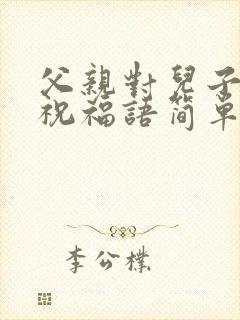 父親對兒子
祝福語簡單
李公樸